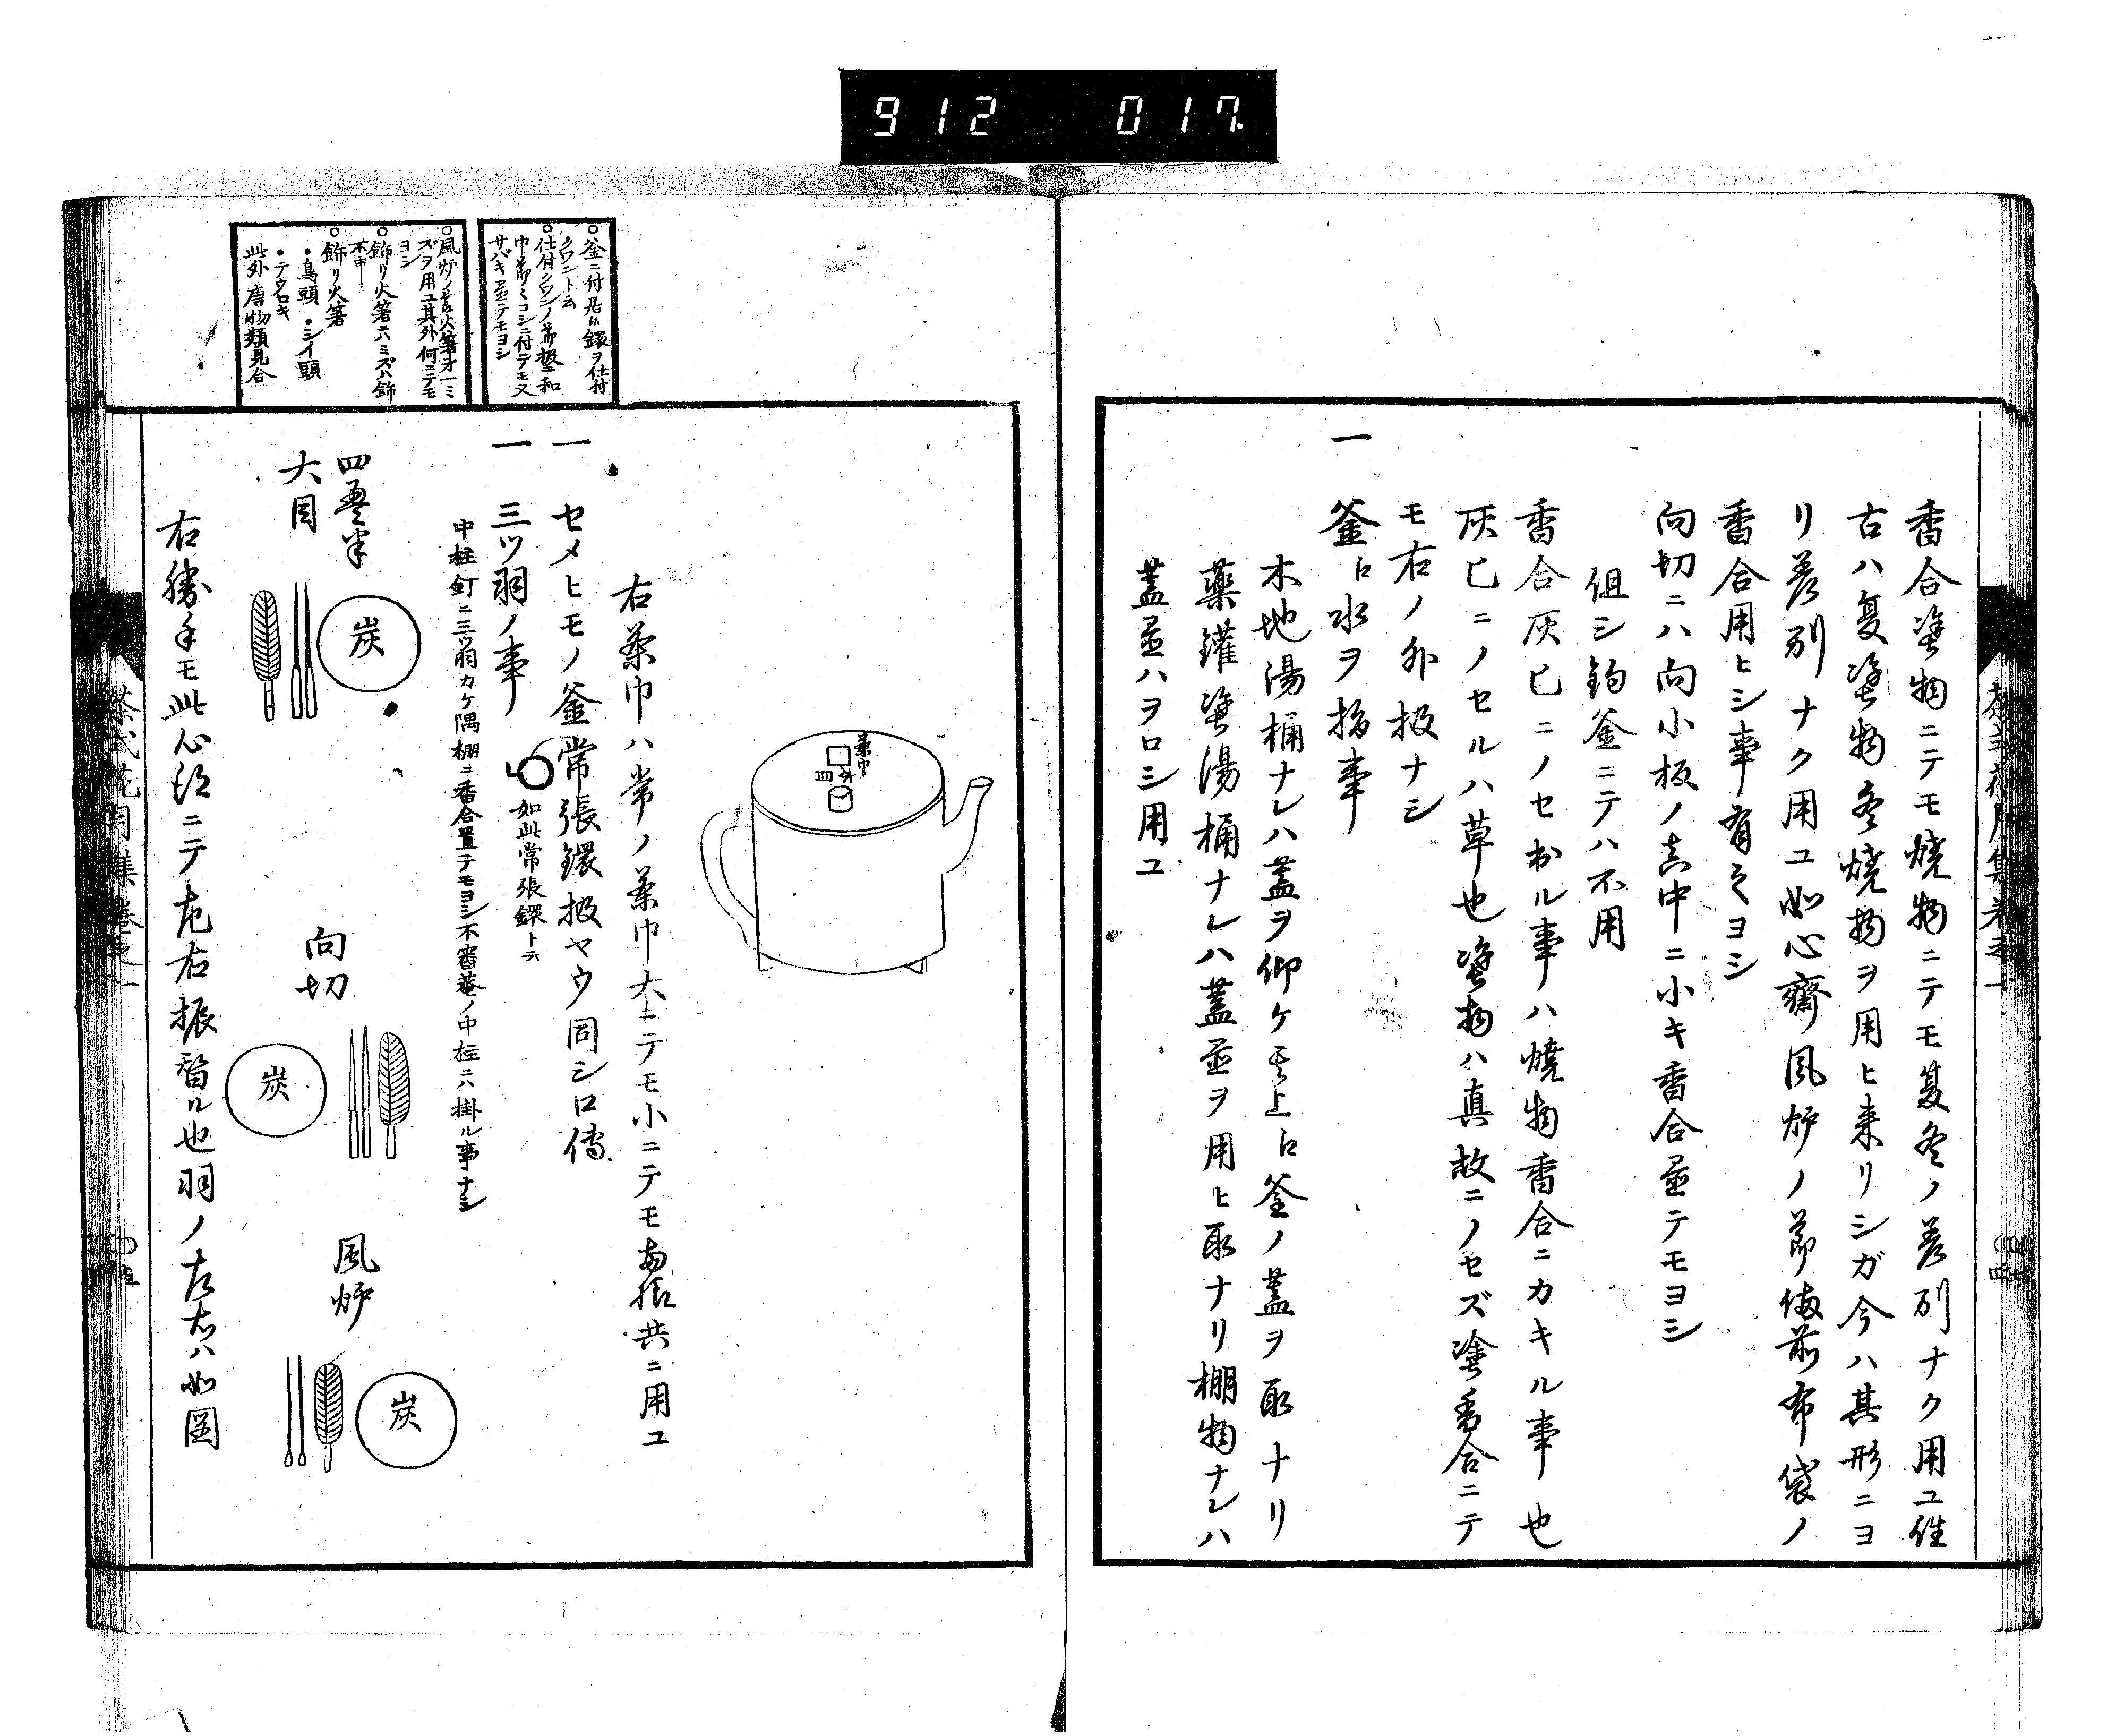 912 017
香合塗物ニテモ焼物ニテモ夏冬ノ差別ナク用ユ往
古ハ夏塗物冬焼物ヲ用ヒ来リシガ今ハ其形ニヨ
リ差別ナク用ユ如心齋風炉ノ節備前布袋ノ
香合用ヒシ事有之ヨシ
向切ニハ向小板ノ真中ニ小キ香合置テモヨシ
但シ釣釜ニテハ不用
香合灰匕ニノセ出ル事ハ焼物香合ニカキル事也
灰匕ニノセルハ草也塗物ハ真故ニノセズ塗香合ニテ
モ右ノ外扱ナシ
一 釜ニ水ヲ指事
木地湯桶ナレハ蓋ヲ仰ケ其上ニ釜ノ蓋ヲ取ナリ
薬鑵塗湯桶ナレハ蓋置ヲ用ヒ取ナリ棚物ナレハ
蓋置ハヲロシ用ユ
釜ニ付居ル鐶ヲ仕付
クワント云
仕付クワンノ節扱和
巾
サバキ置テモヨシ
風炉ノ
ズヲ用ユ其外何ニテモ
ヨシ
飾リ火箸ニハミズハ飾
不申
飾リ火箸
・鳥頭 ・シイ頭
此外唐物類見合
茶巾
右茶巾ハ常ノ茶巾大ニテモ小ニテモ両様共ニ用ユ
一 セメヒモノ釜常張鐶扱ヤウ同シ口傳
一 三ツ羽ノ事
如此常張鐶ト云
中柱釘ニ三ツ羽カケ隅棚ニ香合置テモヨシ不審菴ノ中柱ニハ掛ル事ナシ
四畳半
大目
炭
向切
炭
風炉
炭
右勝手モ此心得ニテ左右振替ル也羽ノ左右ハ如図